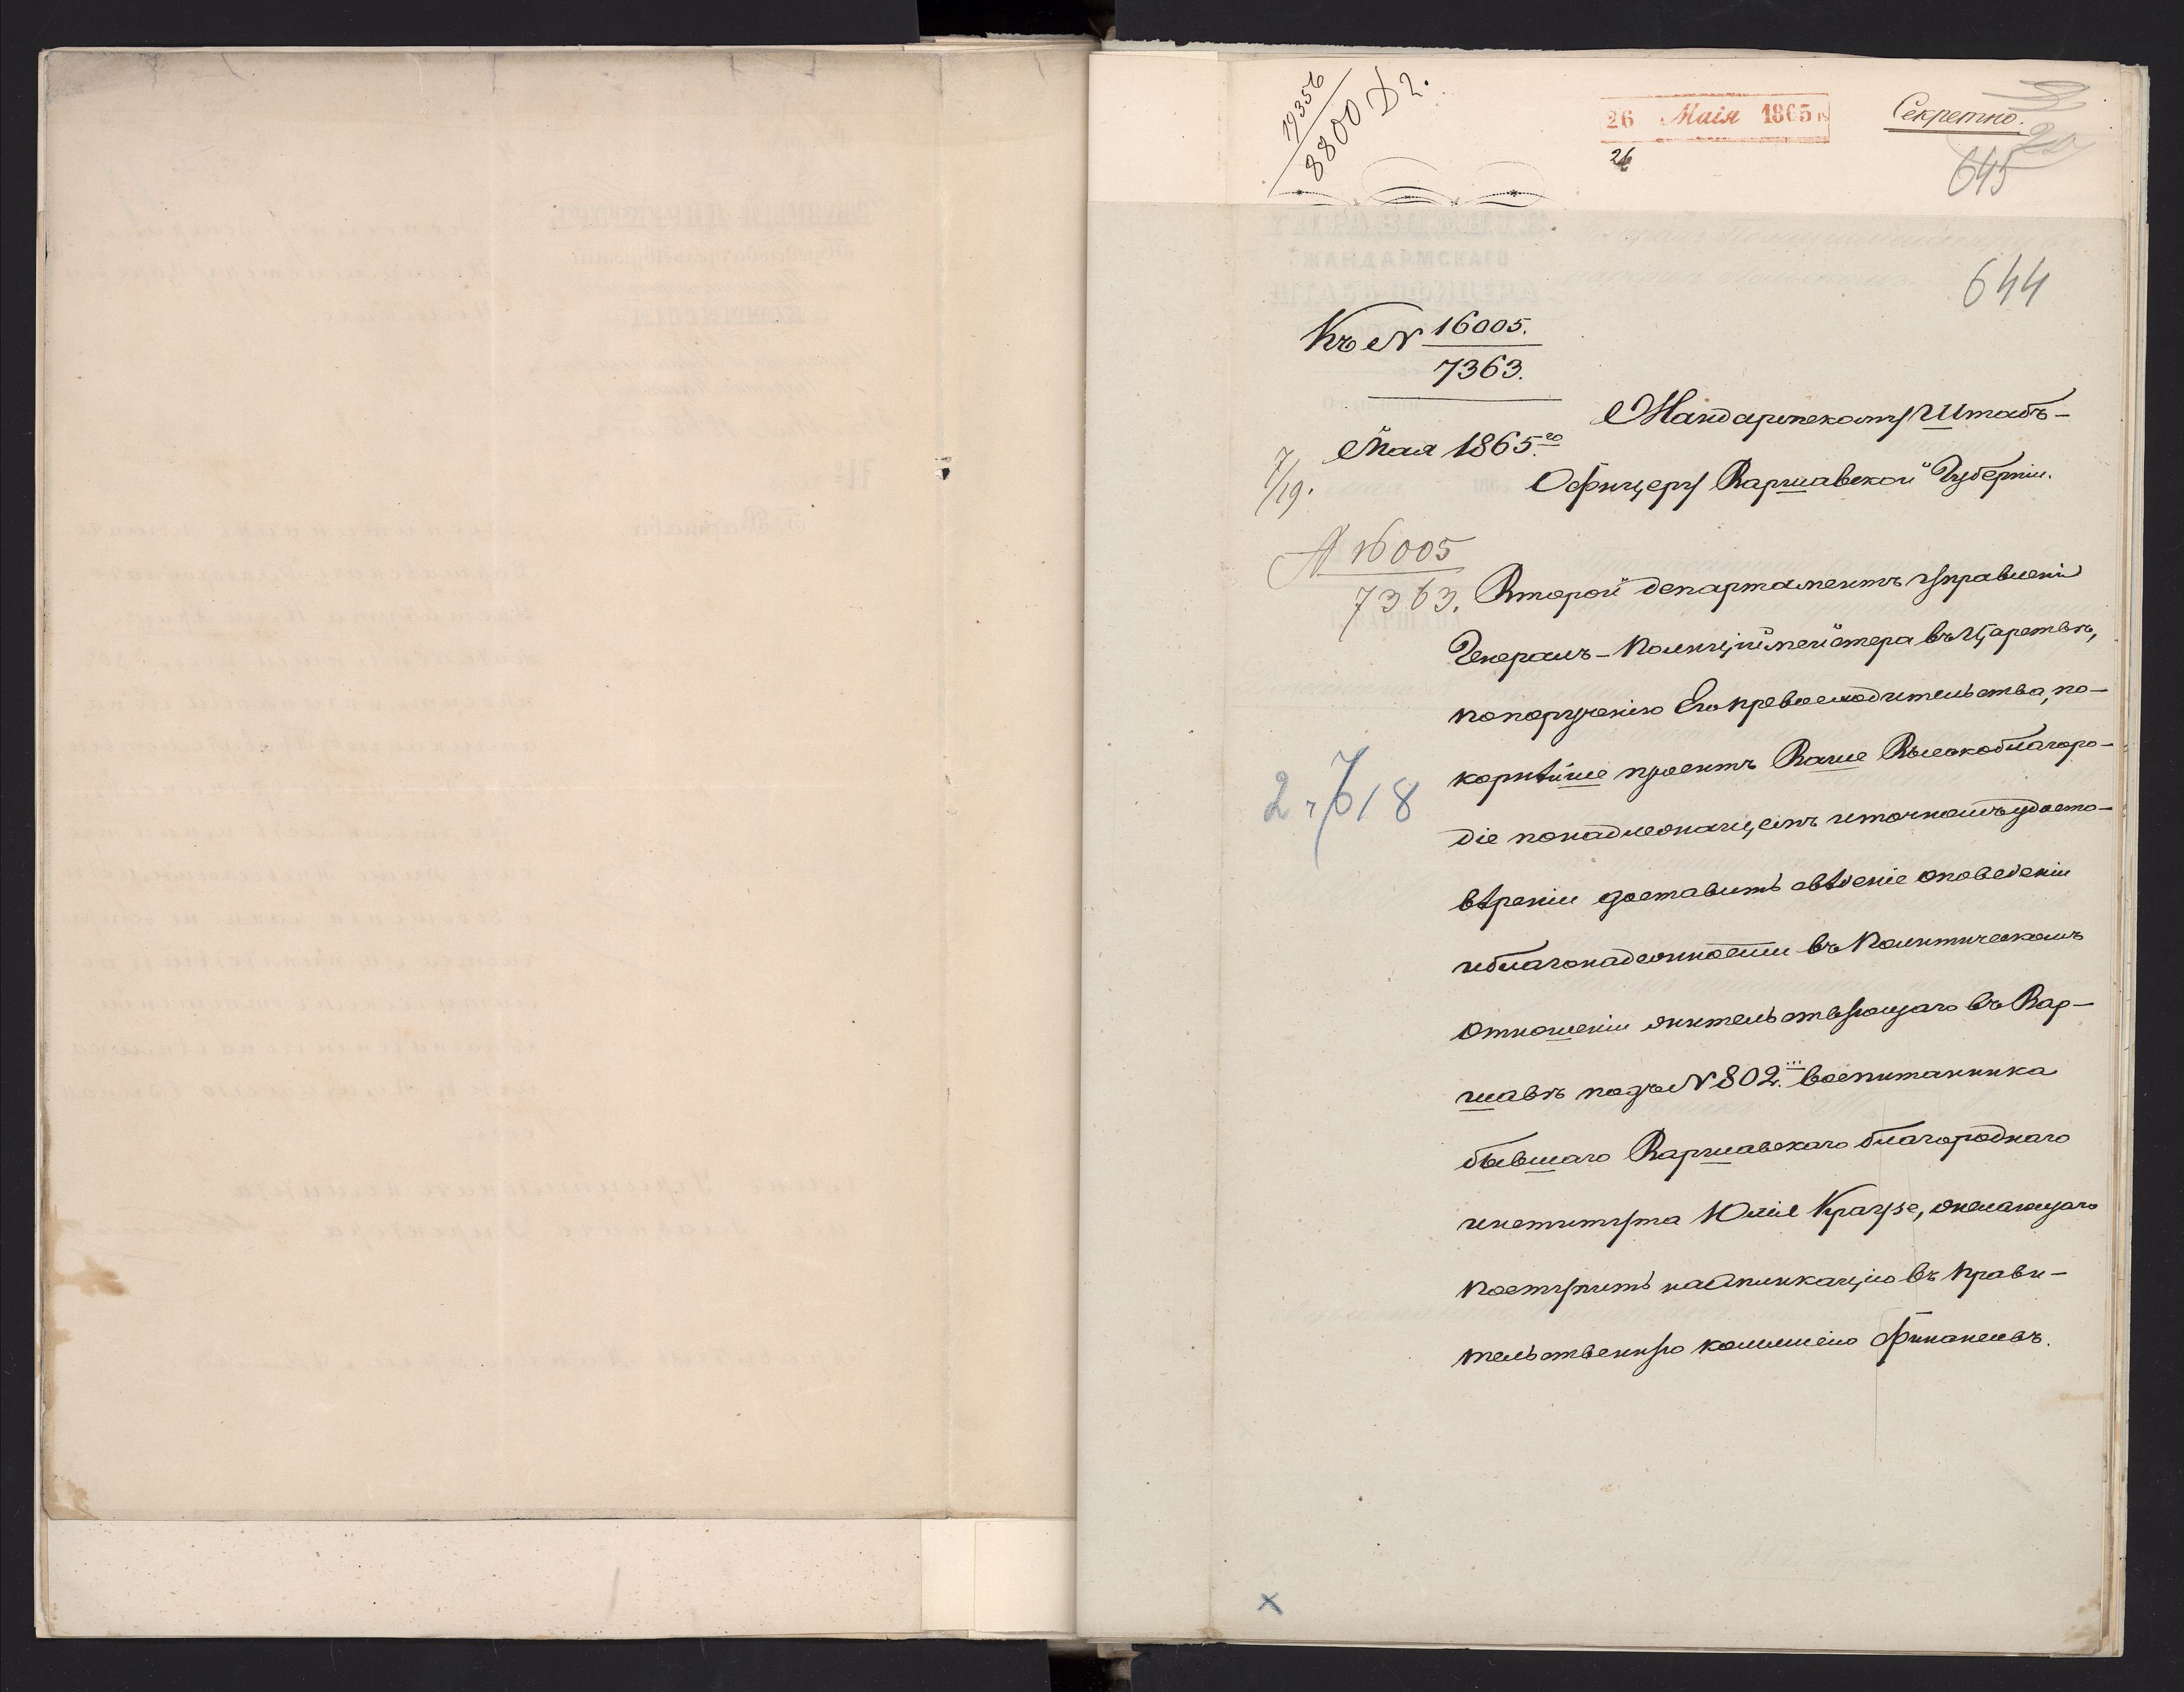 19356
8800 Д 2.
26 Маія 1865
26
Секретно.
645
644
УПРАВЛЕНІЕ
ЖАНДАРМСКАГО
ШТАБЪ-ОФИЦЕРА
Къ № 16005.
7363.
Жандармскому Штабъ-
Мая 1865.го
7/19.
Офицеру Варшавской Губерніи.
№ 16005
7363.
Второй департаментъ Управленія
Генералъ-Полиціймейстера въ Царствѣ,
по порученію Его превосходительства, по-
корнѣйше проситъ Ваше Высокоблагоро-
2 7/618
діе по надлежащемъ и точномъ удосто-
вѣреніи доставить свѣденіе о поведеніи
и благонадежности въ Политическомъ
отношеніи жительствующаго въ Вар-
шавѣ подъ № 802. воспитанника
бывшаго Варшавскаго благороднаго
института Юлія Краузе, желающаго
поступить на Апликацію въ Прави-
тельственную коммисію Финансовъ.